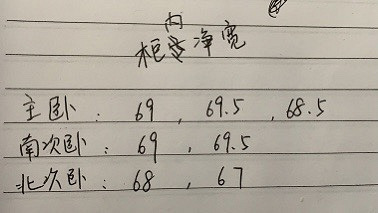 柜内净宽
主卧: 69, 69.5, 68.5
南次卧: 69, 69.5
北次卧: 68, 67